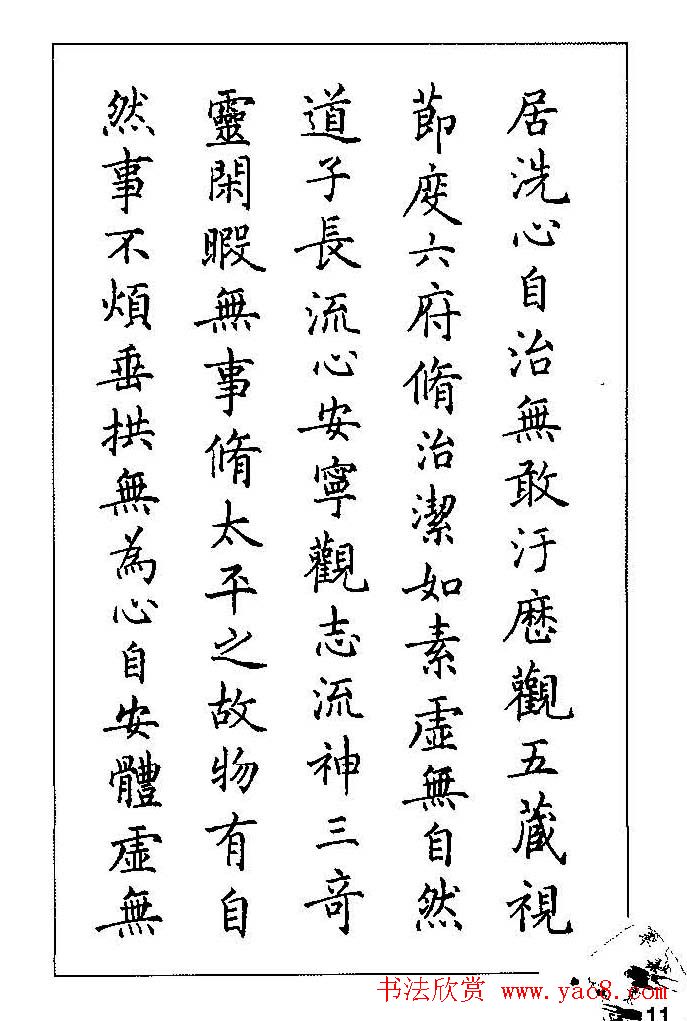 居洗心自治無敢汙歷觀五藏視
節度六府脩治潔如素虛無自然
道子長流心安寧觀志流神三奇
靈閑暇無事脩太平之故物有自
然事不煩垂拱無為心自安體虛無
书法欣赏 www.yac8.com
11